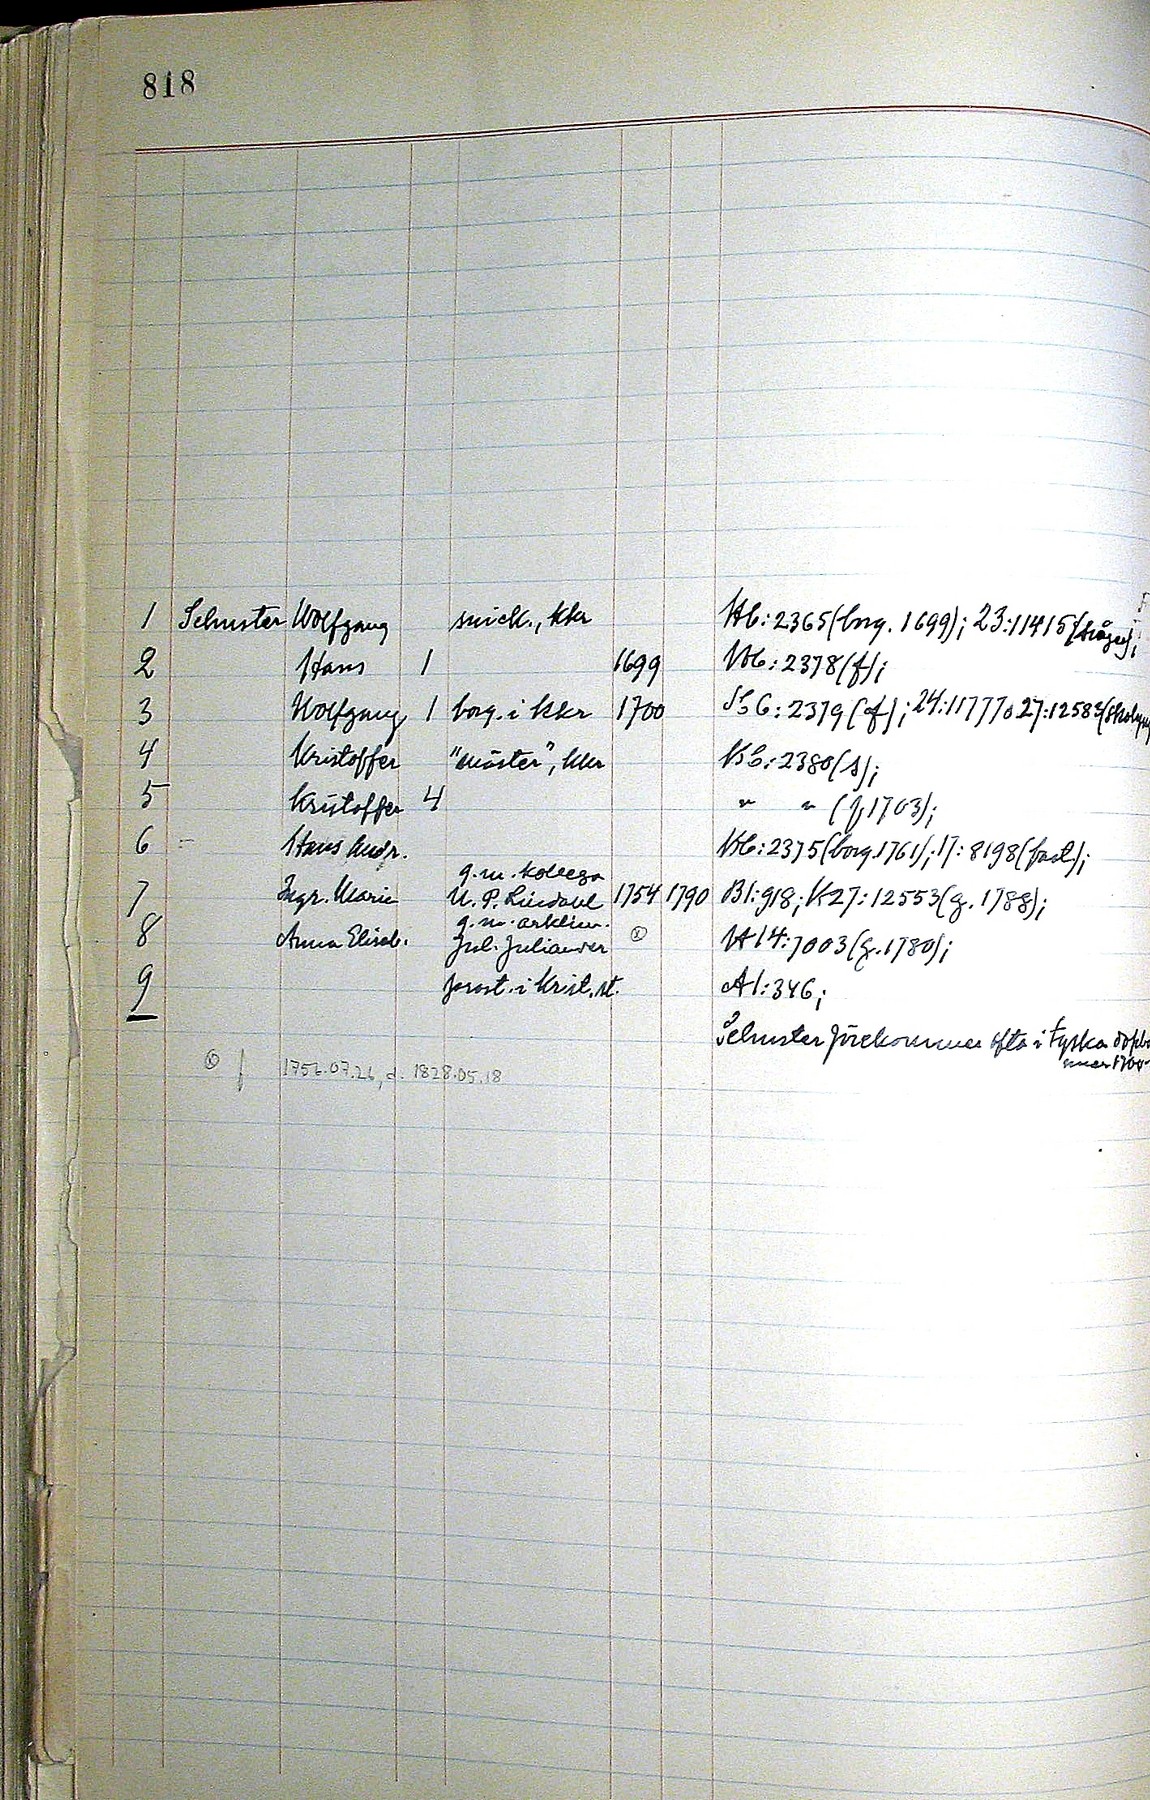 818
1 Schuster Wolfgang snick., kkr K6:2365(borg. 1699); 23:11415
2 Hans 1 1699 K6:2378(f);
3 Wolfgang 1 borg. i kkr 1700 K6:2379(f); 24:11777 o 27:12583
4 Kristoffer "mäster", kkr K6:2380(s);
5 Kristoffer 4 " " (f.1703);
6 - Hans Andr. K6:2375(borg.1761); 17:8198(fast);
g.m. kollega
7 Ingr. Marie U. P. Lindahl 1754 1790 B1:918; K27:12553(g.1788);
g.m. arklim.
8 Anna Elisab. Jul. Juliander ⓧ K14:7003(g.1780);
9 i Krist.st. A1:346;
Schuster förekommer ofta i tyska
1700
ⓧ f 1756.07.26, d. 1828.05.18